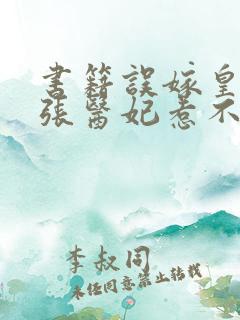 書籍誤嫁皇
張醫妃惹不
李叔同
未经同意禁止转载